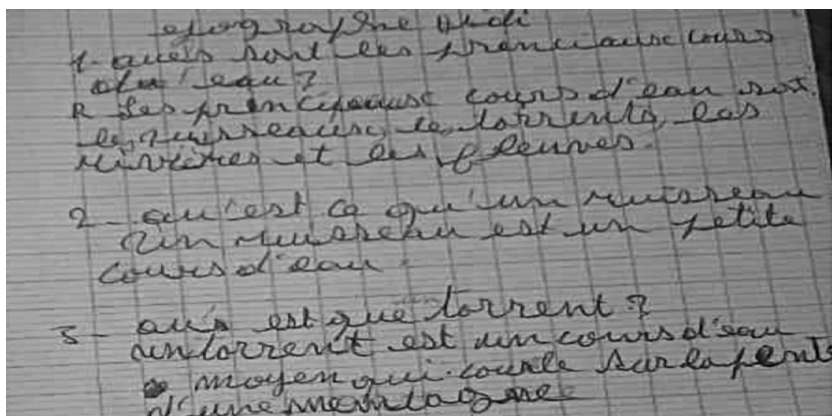 géographie
1- quels sont les principaux cours
d'eau ?
R Les principaux cours d'eau sont
les ruisseaux, le torrents, les
rivières et les fleuves.
2 - qu'est ce qu'un ruisseau
Un ruisseau est un petite
cours d'eau.
3 - est que torrent ?
un torrent est un cours d'eau
moyen qui coule sur la pente
d'une montagne